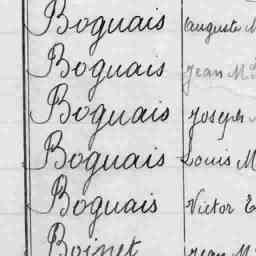 Boguais Auguste M
Boguais Jean M
Boguais Joseph
Boguais Louis M
Boguais Victor E
Boinet Jean M